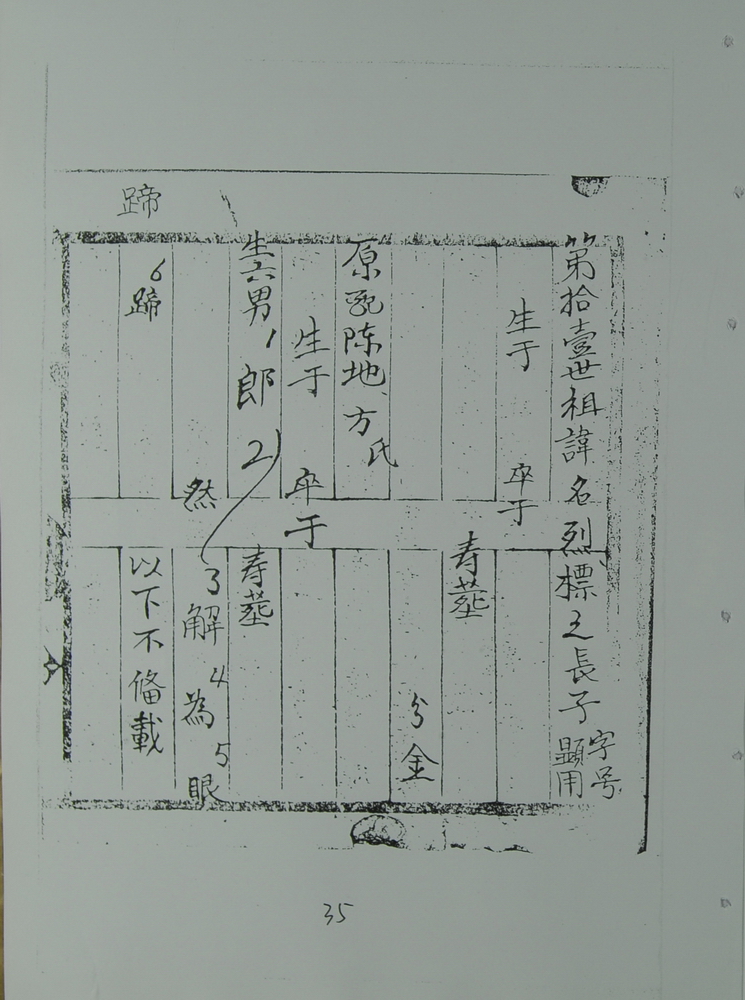 第拾壹世祖諱名烈標之長子字号顕用
生于 卒于
寿塟
分金
原配陈地、方氏
生于 卒于
生六男1郎 2 寿塟
然 3解 4為 5眼
6蹄 以下不俻載
蹄
35